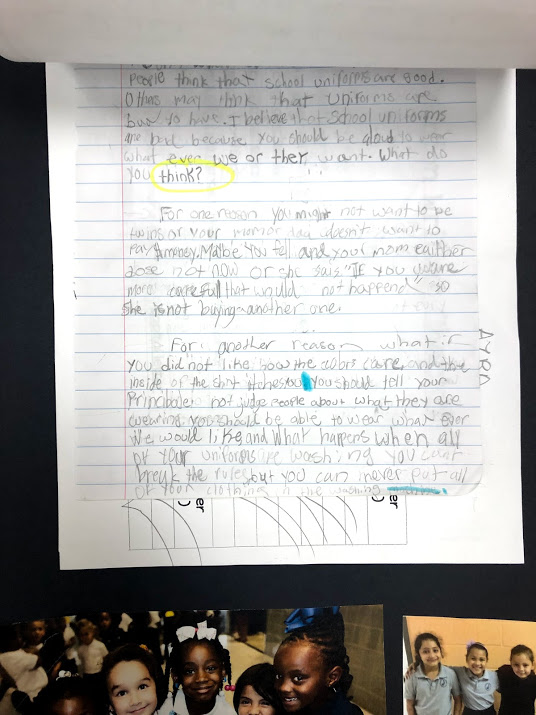 People think that school uniforms are good.
Others may think that uniforms are
bad to have. I believe that school uniforms
are bad because you should be aloud to wear
what ever we or they want. What do
you think?
For one reason you might not want to be
twins or your mom or dad doesn't want to
pay money. Maibe you fell and your mom eaither
dose not now or she sais "If you were
more carefull that would not happend" so
she is not buying another one.
For another reason what if
you did not like how the colors are and the
inside of the shirt itches you you should tell your
Principale not judge people about what they are
wearing you should be able to wear what ever
We would like and What happens when all
of your uniforms are washing you cant
break the rules, but you can never put all
of your clothing in the washing
AYRA
er)
er)